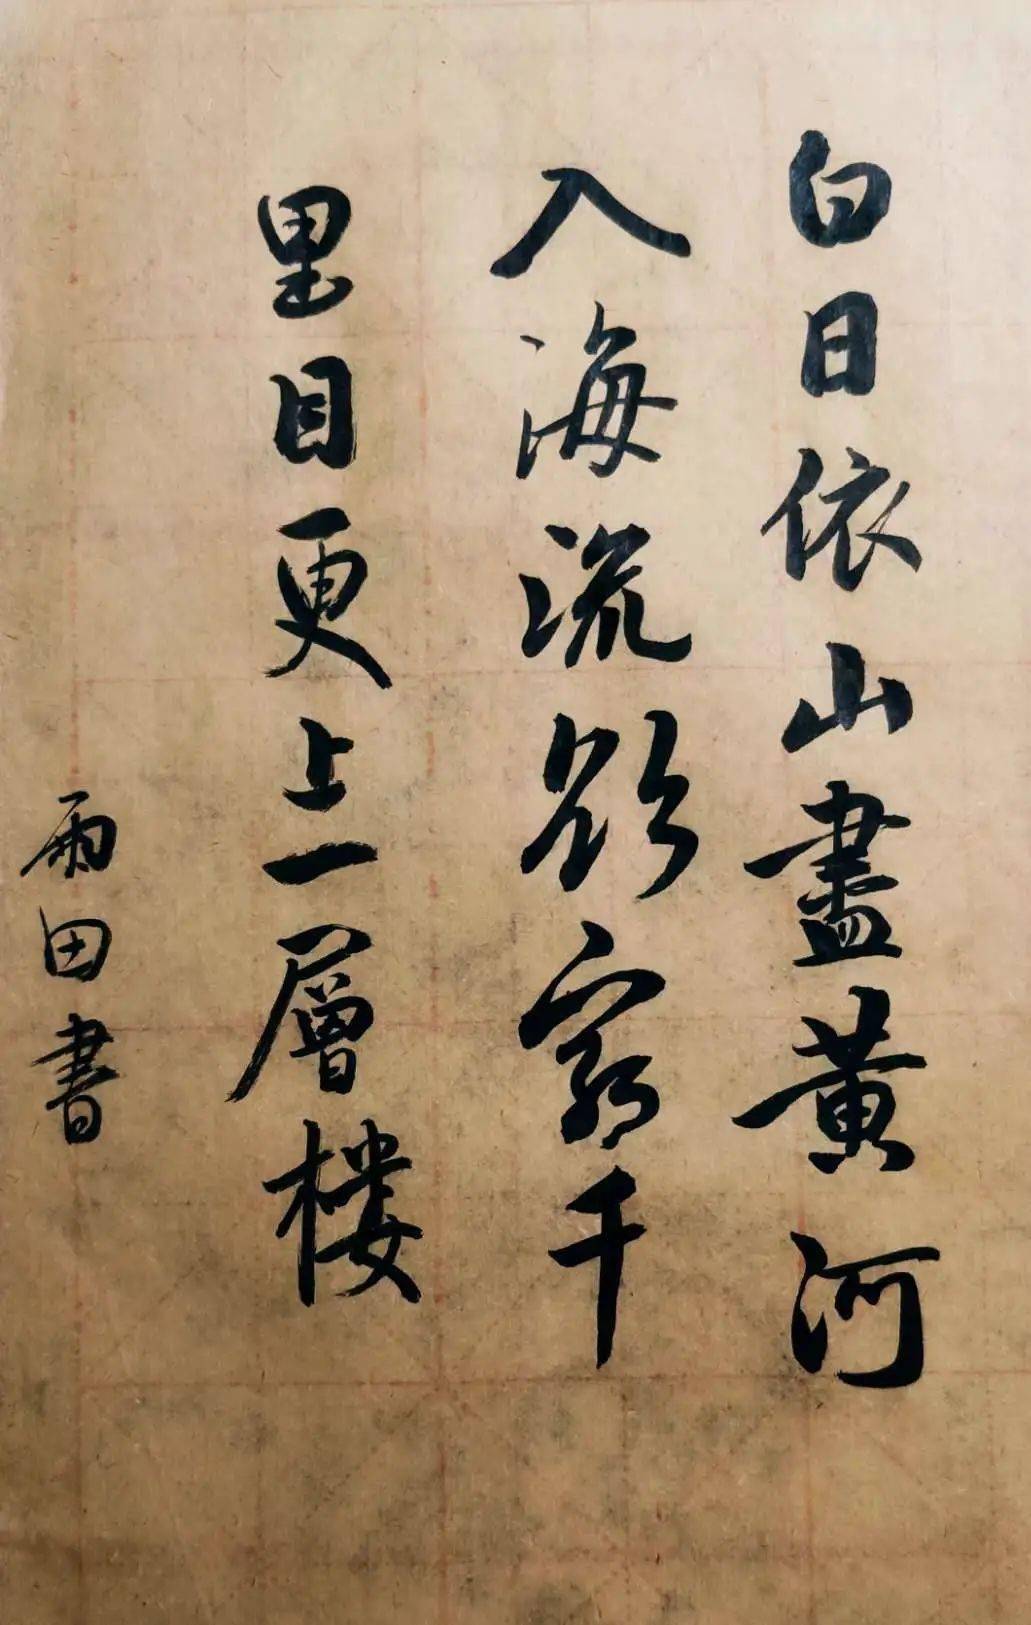 白日依山盡黃河
入海流欲窮千
里目更上一層樓
雨田書